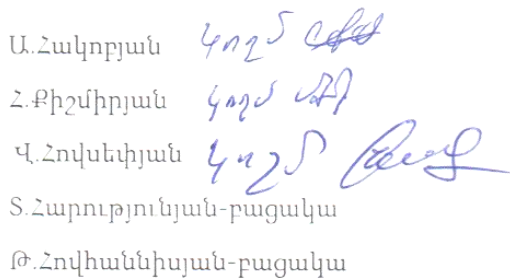 Ա.Հակոբյան կողմ
Հ.Քիշմիրյան կողմ
Վ.Հովսեփյան կողմ
Տ.Հարությունյան-բացակա
Թ.Հովհաննիսյան-բացակա